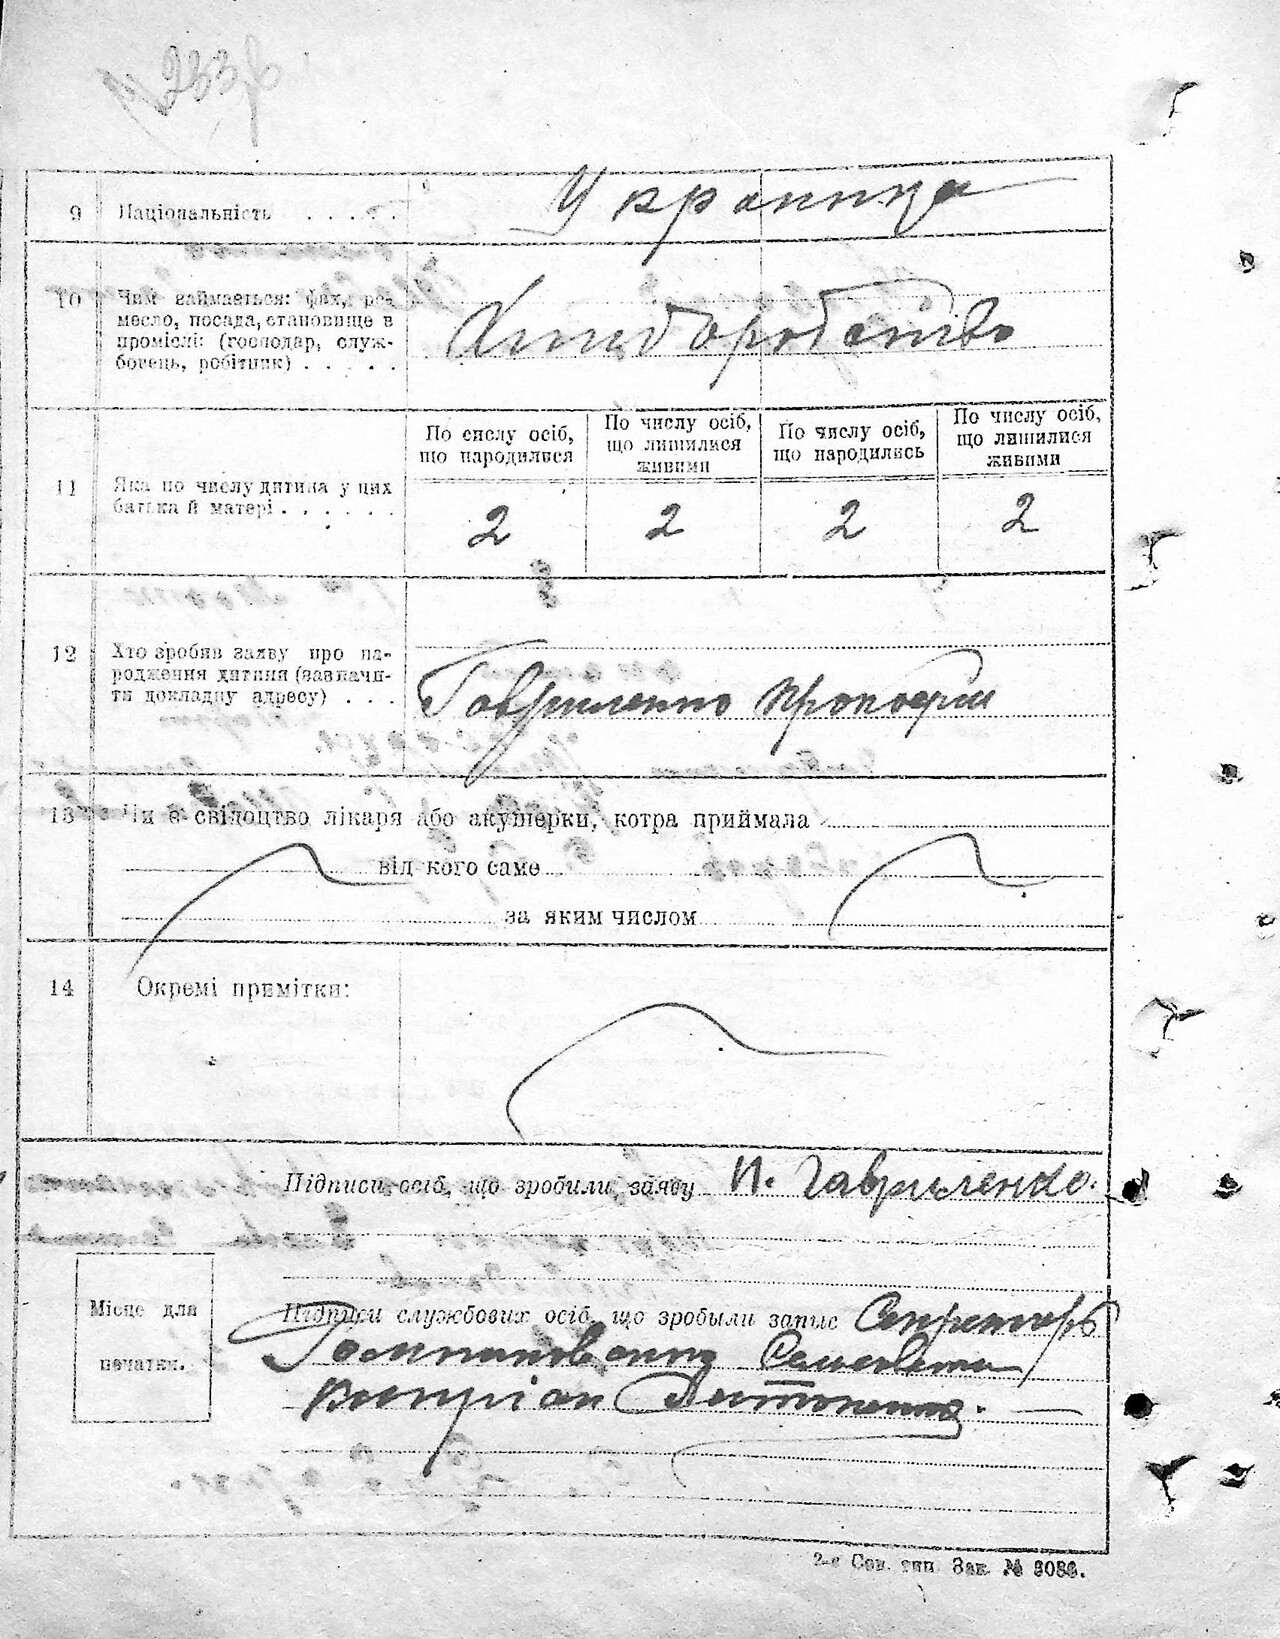 9 Національність . . . . .
Украинка
10 Чим займається: фах, ре-
месло, посада, становище в
промислі: (господар, служ-
бовець, робітник) . . . . .
Хлиборобство
По числу осіб,
що народилися
По числу осіб,
що лишилися
живими
По числу осіб,
що народились
По числу осіб,
що лишилися
живими
11 Яка по числу дитина у цих
батька й матері . . . . . .
2 2 2 2
12 Хто зробив заяву про на-
родження дитини (зазначи-
ти докладну адресу) . . .
Гавриленко Прокофий
13 Чи є свідоцтво лікаря або акушерки, котра приймала
від кого саме
за яким числом
14 Окремі примітки:
Підписи осіб, що зробили заяву П. Гавриленко.
Місце для
печатки.
Підписи службових осіб, що зробыли запис Секретарь
Сельсовета
2-я Сов. тип. Зак. №